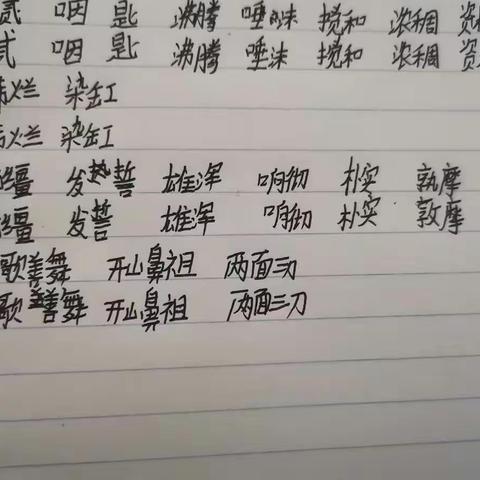 贰 咽 匙 沸腾 唾沫 搅和 浓稠 资
贰 咽 匙 沸腾 唾沫 搅和 浓稠 资
烂 染缸
烂 染缸
疆 发誓 雄浑 响彻 朴实 敦摩
疆 发誓 雄浑 响彻 朴实 敦摩
歌善舞 开山鼻祖 两面三刀
歌善舞 开山鼻祖 两面三刀